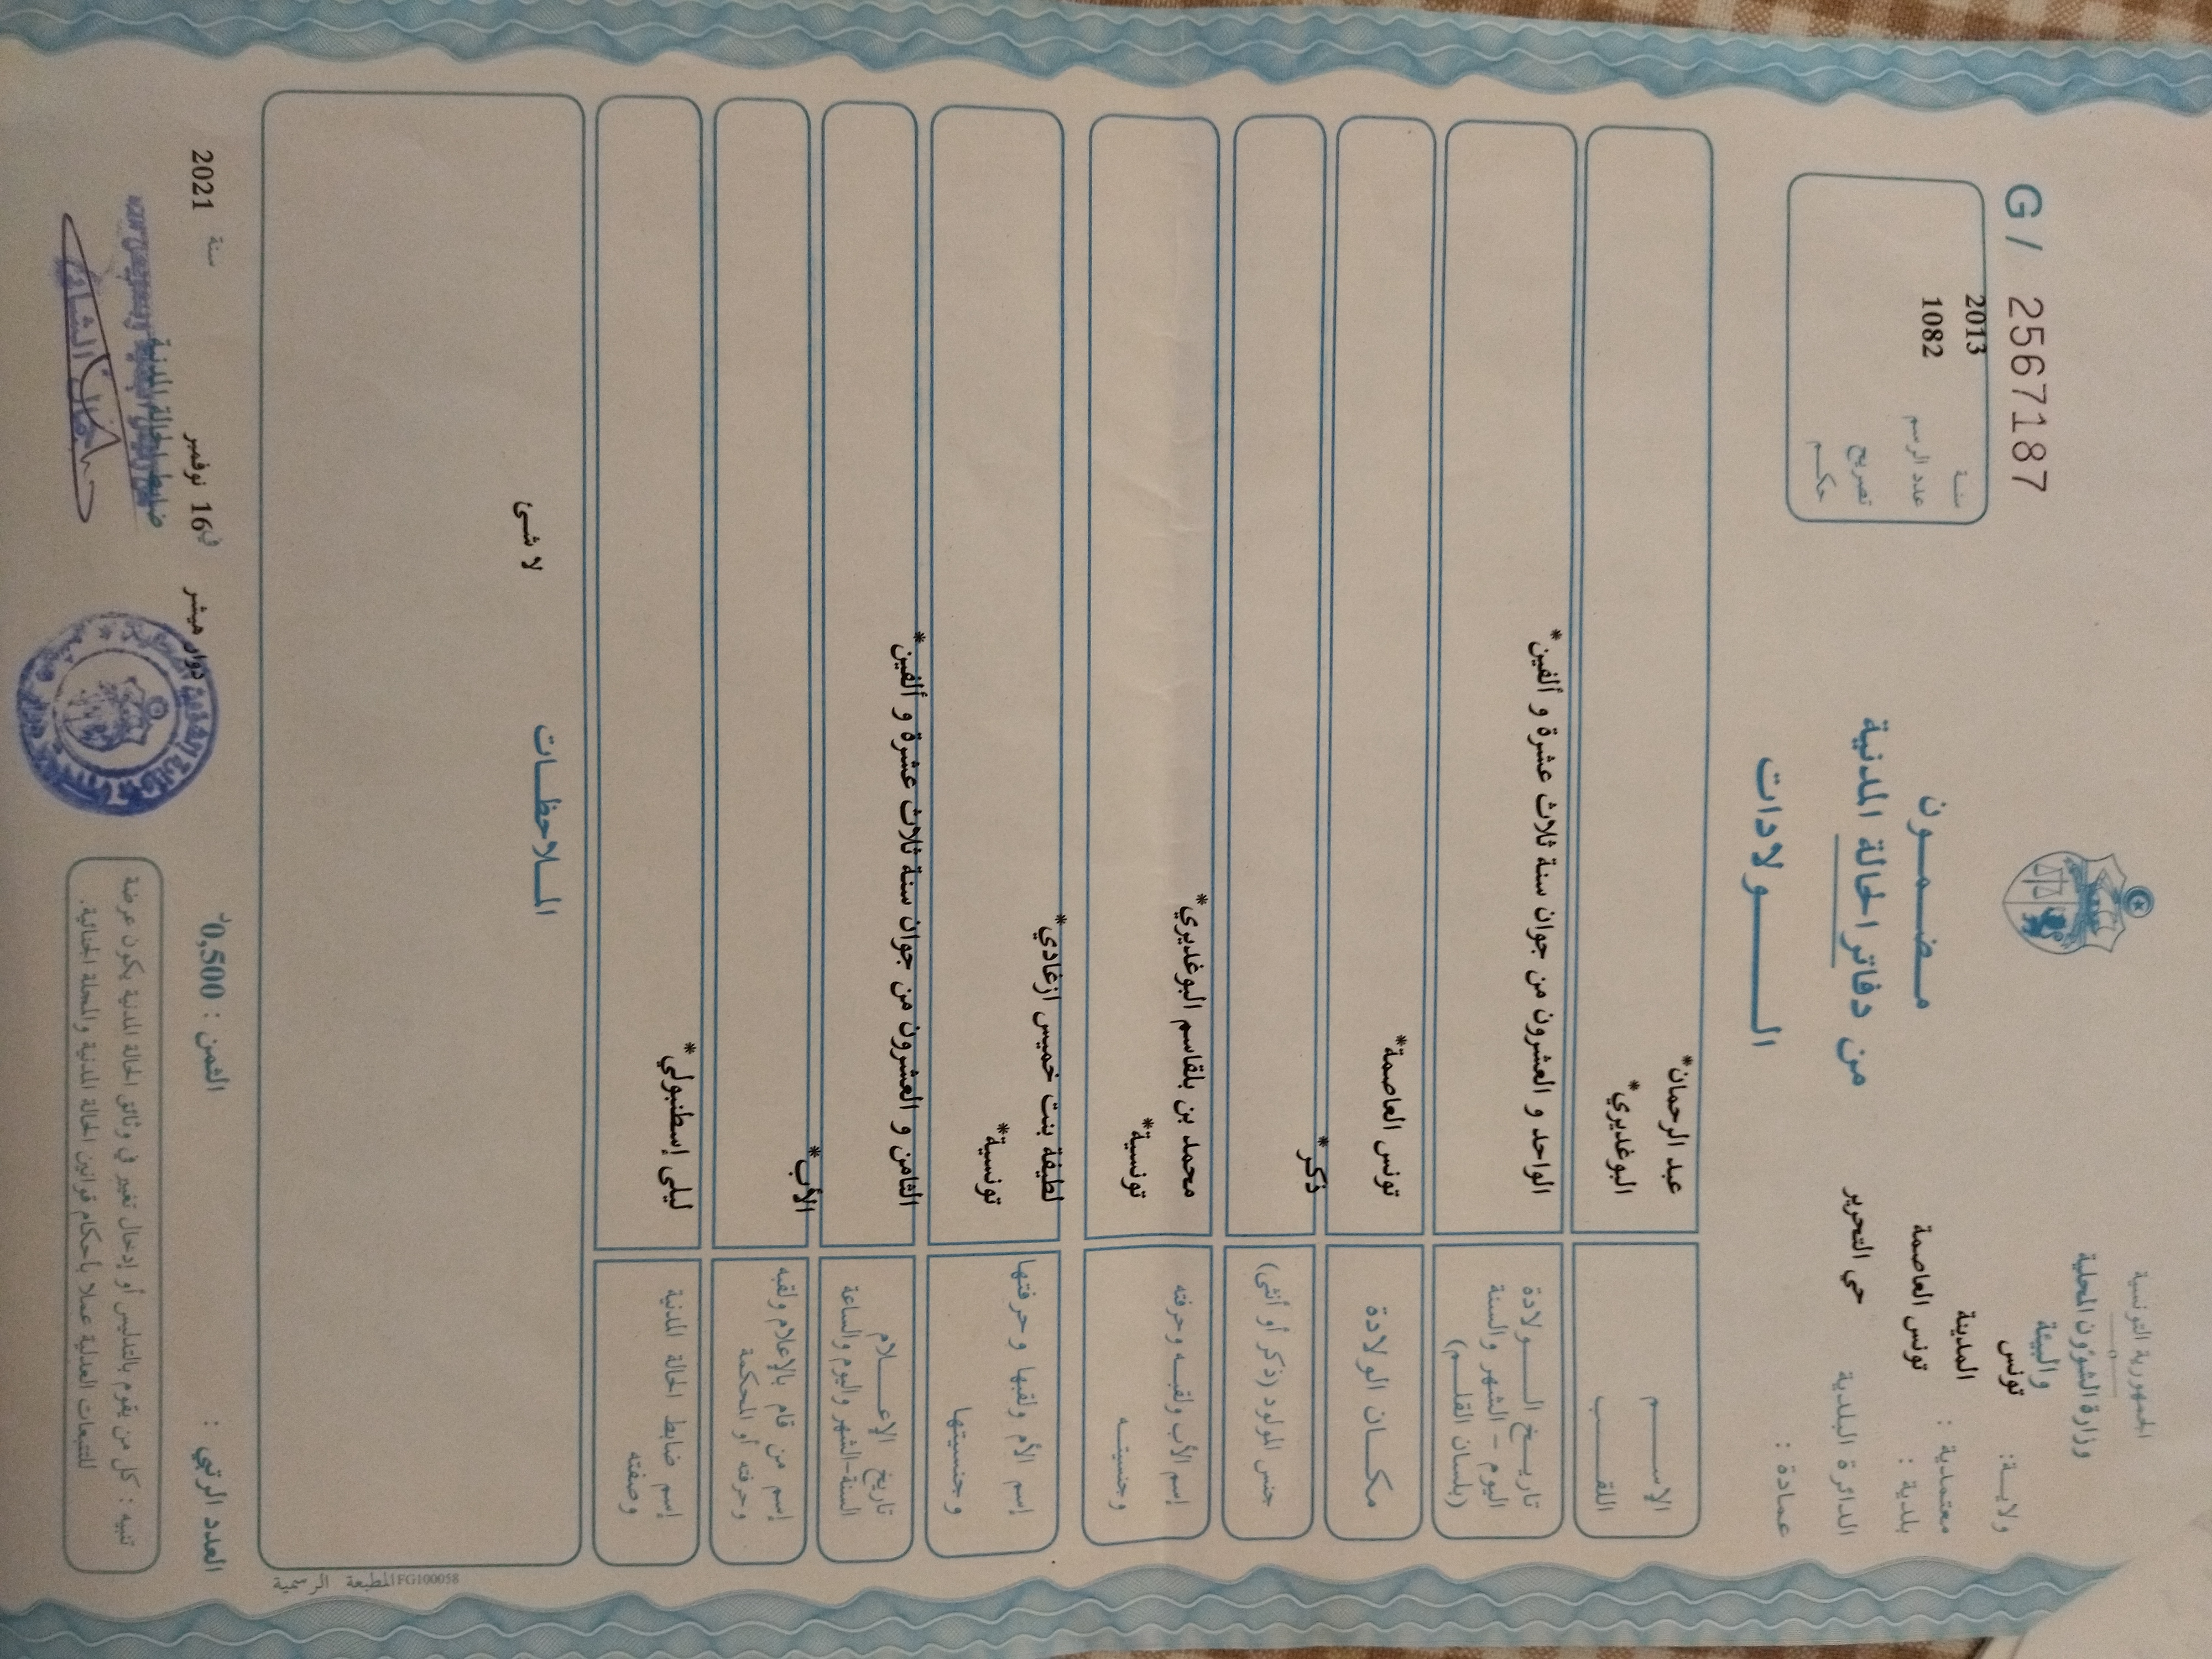 الجمهورية التونسية
وزارة الشؤون المحلية
والبيئة
ولايـــة: تونس
معتمدية : المدينة
بلدية : تونس العاصمة
الدائرة البلدية حي التحرير
عمادة :
G/ 2567187
سنـة 2013
عدد الرسم 1082
تصريح
حكـم
مـضـمـون
من دفاتر الحالة المدنية
الـــولادات
الإســـم عبد الرحمان*
اللقـــب البوغديري*
تاريـــخ الـــولادة
اليوم – الشهر والسنة
(بلسان القلـــم)
الواحد و العشرون من جوان سنة ثلاث عشرة و ألفين*
مكـــان الولادة تونس العاصمة*
جنس المولود (ذكر أو أنثى) ذكر*
إسم الأب ولقبـــه وحرفته محمد بن بلقاسم البوغديري*
وجنسيتـــه تونسية*
إسم الأم ولقبها وحرفتها لطيفة بنت خميس ازغادي*
وجنسيتها تونسية*
تاريخ الإعـــلام
السنة-الشهر واليوم والساعة
الثامن و العشرون من جوان سنة ثلاث عشرة و ألفين*
إسم من قام بالإعلام ولقبه
وحرفته أو المحكمة
الأب*
إسم ضابط الحالة المدنية
وصفته
ليلى إسطنبولي*
المـلاحظـــات
لا شئ
المطبعة الرسمية FG100058
العدد الرتبي :
الثمن : 0,500د
دوار هيشر في 16 نوفمبر سنة 2021
ضابط الحالة المدنية
تنبيه : كل من يقوم بالتدليس أو إدخال تغيير في وثائق الحالة المدنية يكون عرضة
للتتبعات العدلية عملا بأحكام قوانين الحالة المدنية والمجلة الجنائية.